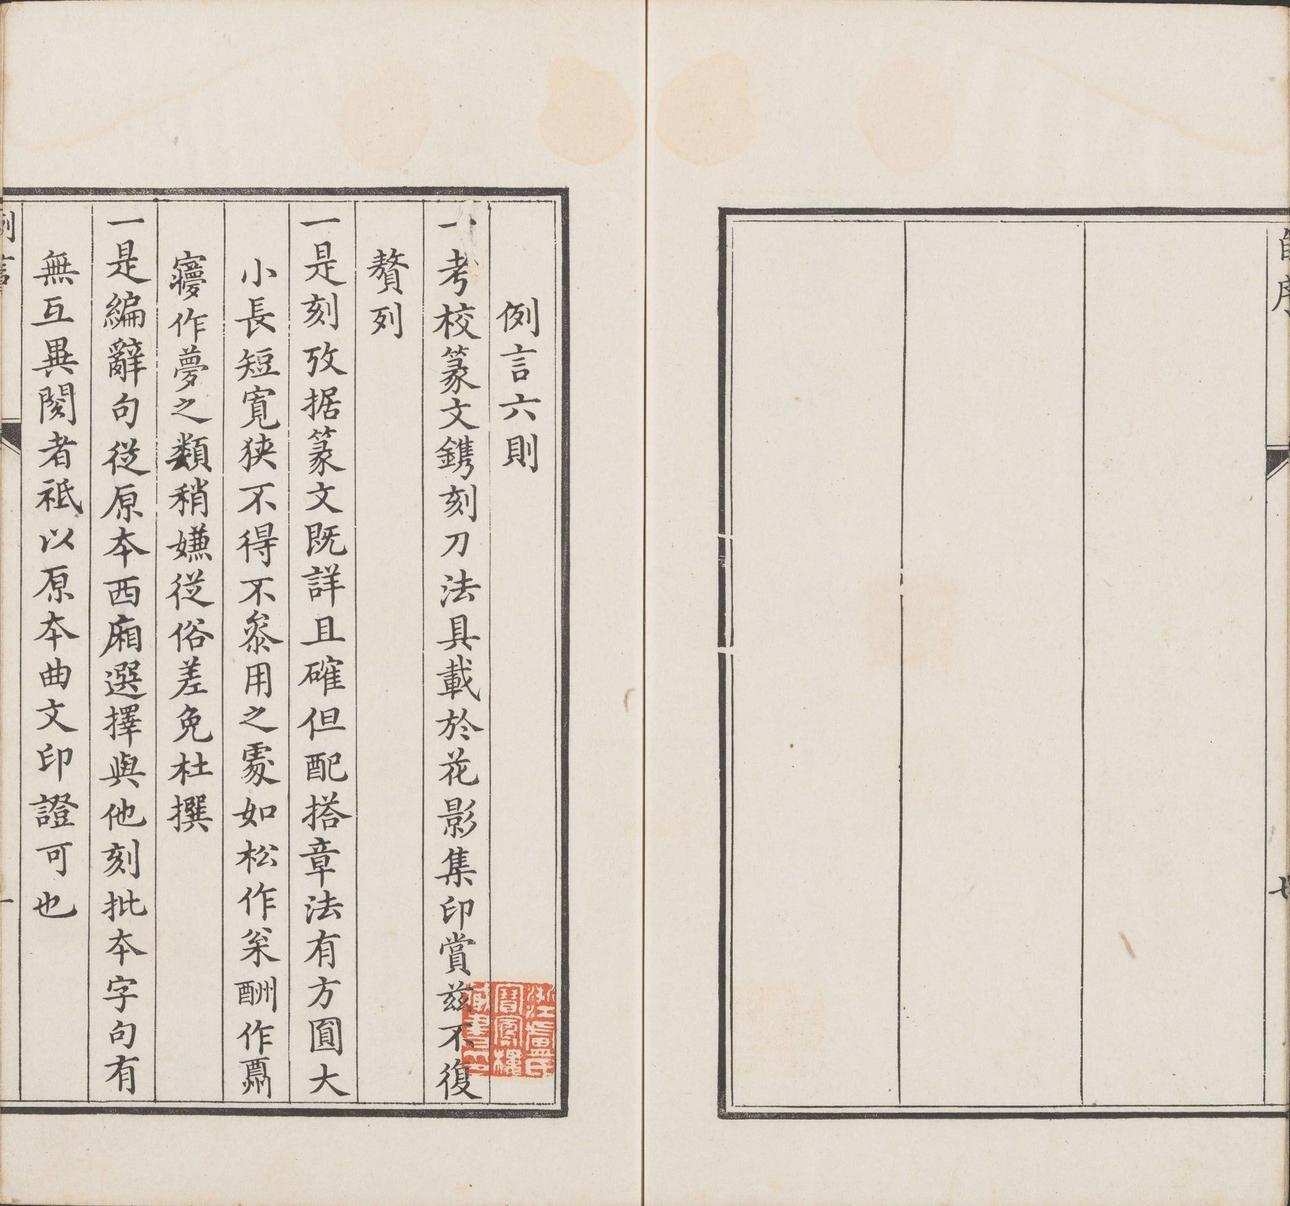 自序
七
例言六則
一考校篆文鐫刻刀法具載於花影集印賞茲不復
贅列
一是刻攷据篆文既詳且確但配搭章法有方圓大
小長短寬狹不得不叅用之處如松作枀酬作
寢作夢之類稍嫌從俗差免杜撰
一是編辭句從原本西廂選擇與他刻批本字句有
無互異閱者祗以原本曲文印證可也
例言
一